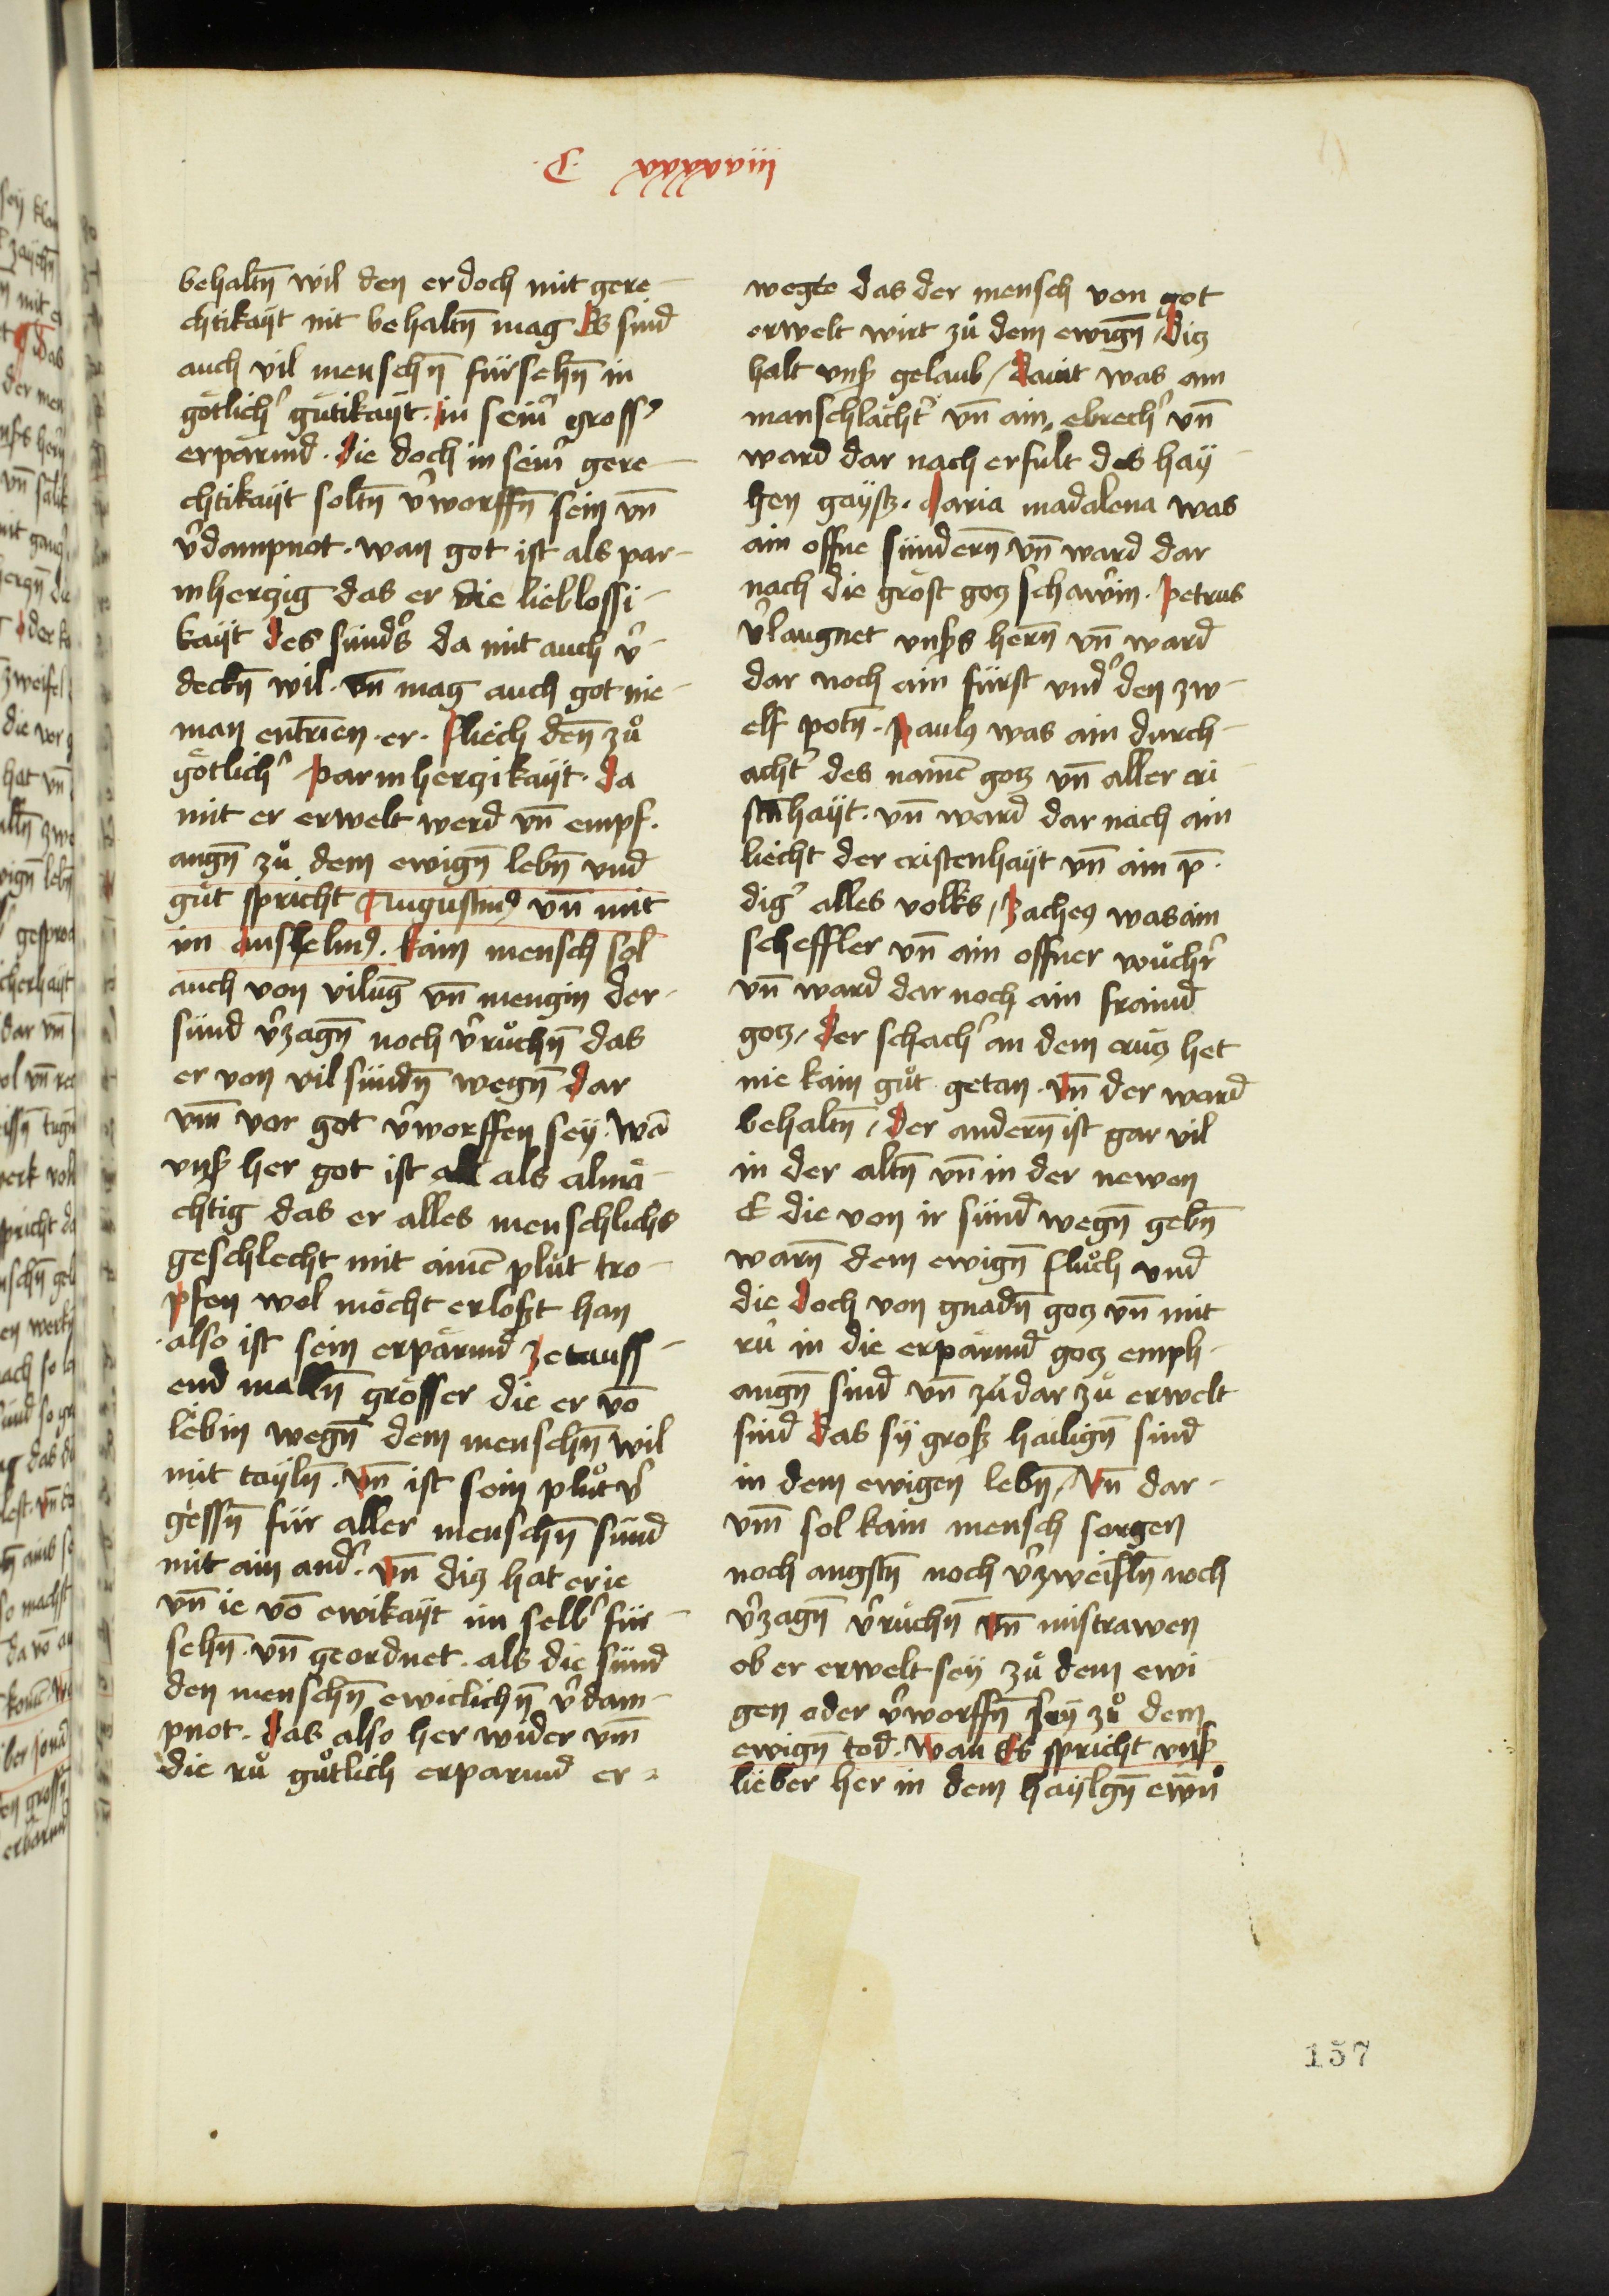 C xxxxxviiij
behaltn̄ wil den er doch mit gere-
chtikayt nit behaltn̄ mag Es sind
auch vil menschn̄ fürsehn̄ in
götlichr̉ gütikayt. in seinr̉ gross9
erpärmd. die doch in seinr̉ gere-
chtikayt soltn̄ v̉worffn̄ sein vn̄
v̉dampnot. wan got ist als par-
mherzig das er die lieblossi-
kayt des sünders da mit auch v̉-
deckn̄ wil. vn̄ mag auch got nie-
man entrīen. er. fliech den̄ zů
götlichr̉ parmherzikayt. da
mit er erwelt werd vn̄ empf.
angn̄ zů dem ewign̄ lebn̄ vnd
gůt spricht Augustin9 vn̄ mit
im anshelm9. kain mensch sol
auch von vilūg vn̄ mengin der-
sünd v̉zagn̄ noch v̉růchn̄ das
er von vil sündn̄ wegn̄ dar
vm̄ vor got v̉worffen sey. wā
vnsẜ her got ist all als almä-
chtig das er alles menschlichs
geschlecht mit aimē plůt tro-
pfen wol möcht erloszt han
also ist sein erpärmd ze tauss-
end malln̄ grösser die er vō
lebin wegn̄ dem menschn̄ wil
mit tayln̄. vn̄ ist sein plůt v̉
gessn̄ für aller menschn̄ sünd
mit ain andr̉. vn̄ diz hat er ie
vn̄ ie vō ewikayt im selbr̉ für-
sehn̄. vn̄ geordnet. als die sünd
den menschn̄ ewiclichn̄ v̉dam-
pnot. das also her wider vm̄
die rů gůtlich erparmd er-
wegte das der mensch von got
erwelt wirt zů dem ewign̄ / diz
halt vnsẜ gelaub / dauit was ain
manschlächtr̉ vn̄ ain ebrechr̉ vn̄
ward dar nach erfult des hay-
hen gaystz. Maria madalena was
ain offne sündern̄ vn̄ ward dar
nach die gröst gotz schawr̉in. petrus
v̉laugnet vnsẜs hern̄ vn̄ ward
dar noch ain fürst vndr̉ den zw-
elf potn̄. paul9 was ain durch-
achtr̉ des namē gotz vn̄ aller cri-
stn̄hayt. vn̄ ward dar nach ain
liecht der cristenhayt vn̄ ain p̄.
digr̉ alles volks / zache9 was ain
scheffler vn̄ ain offner wůchr̉r
vn̄ ward dar noch ain fraind
gotz / der schachr̉ an dem crütz het
nie kain gůt getan. vn̄ der ward
behaltn̄ / der andern̄ ist gar vil
in der altn̄ vn̄ in der newen
E die von ir sünd wegn̄ gebn̄
warn̄ dem ewign̄ flůch vnd
die doch von gnadn̄ gotz vn̄ mit
rů in die erpärmd gotz emph-
angn̄ sind vn̄ zů dar zů erwelt
sind das sy grosz hailign̄ sind
in dem ewigen lebn̄ / vn̄ dar-
vm̄ sol kain mensch sorgen
noch angstn̄ noch v̉zweifln̄ noch
v̉zagn̄ v̉růchn̄ vn̄ mistrawen
ob er erwelt sey zů dem ewi
gen oder v̉worffn̄ sey zů dem
ewign̄ tod. wan Es spricht vnsẜ
lieber her in dem haylgn̄ ewn̄
157